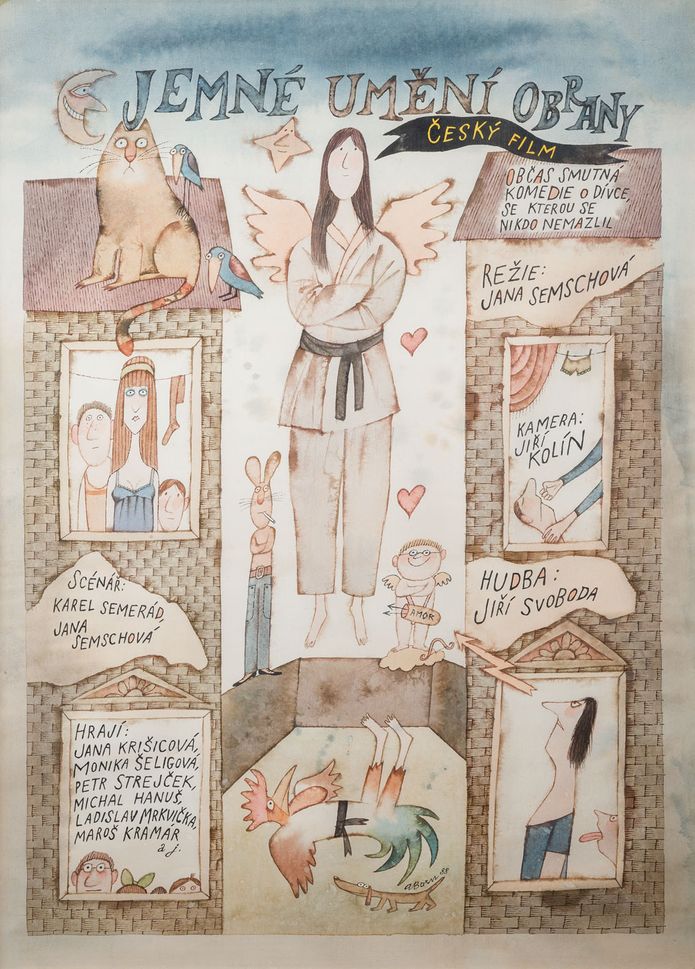 JEMNÉ UMĚNÍ OBRANY
ČESKÝ FILM
OBČAS SMUTNÁ
KOMEDIE O DÍVCE,
SE KTEROU SE
NIKDO NEMAZLIL
REŽIE:
JANA SEMSCHOVÁ
KAMERA:
JIŘÍ
KOLÍN
SCÉNÁŘ:
KAREL SEMERÁD,
JANA
SEMSCHOVÁ
AMOR
HUDBA:
JIŘÍ SVOBODA
HRAJÍ:
JANA KRIŠICOVÁ,
MONIKA ŠELIGOVÁ,
PETR STREJČEK,
MICHAL HANUŠ,
LADISLAV MRKVIČKA,
MAROŠ KRAMÁR
a j.
ABORN 88